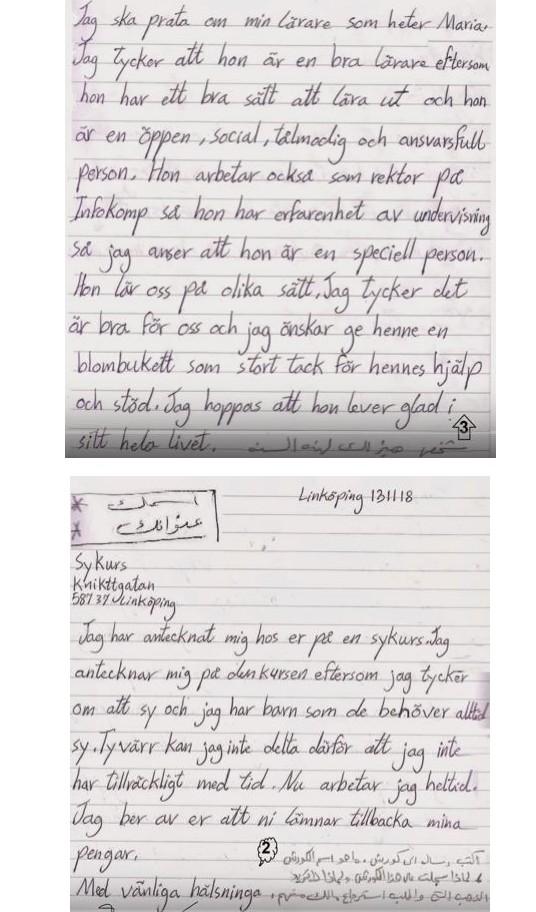 Jag ska prata om min lärare som heter Maria.
Jag tycker att hon är en bra lärare eftersom
hon har ett bra sätt att lära ut och hon
är en öppen, social, tålmodig och ansvarsfull
person. Hon arbetar också som rektor på
Infokomp så hon har erfarenhet av undervisning
så jag anser att hon är en speciell person.
Hon lär oss på olika sätt. Jag tycker det
är bra för oss och jag önskar ge henne en
blombukett som stort tack för hennes hjälp
och stöd. Jag hoppas att hon lever glad i
3
sitt hela livet.
اسمك
عنوانك
Linköping 131118
Sykurs
Knikttgatan
587 37 Linköping
Jag har antecknat mig hos er på en sykurs. Jag
antecknar mig på den kursen eftersom jag tycker
om att sy och jag har barn som de behöver alltid
sy. Tyvärr kan jag inte delta därför att jag inte
har tillräckligt med tid. Nu arbetar jag heltid.
Jag ber av er att ni lämnar tillbacka mina
pengar.
2
Med vänliga hälsninga